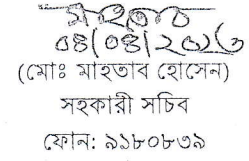 ০৪/০৪/২০২৩
(মোঃ মাহতাব হোসেন)
সহকারী সচিব
ফোন: ৯১৮০৮৩৯